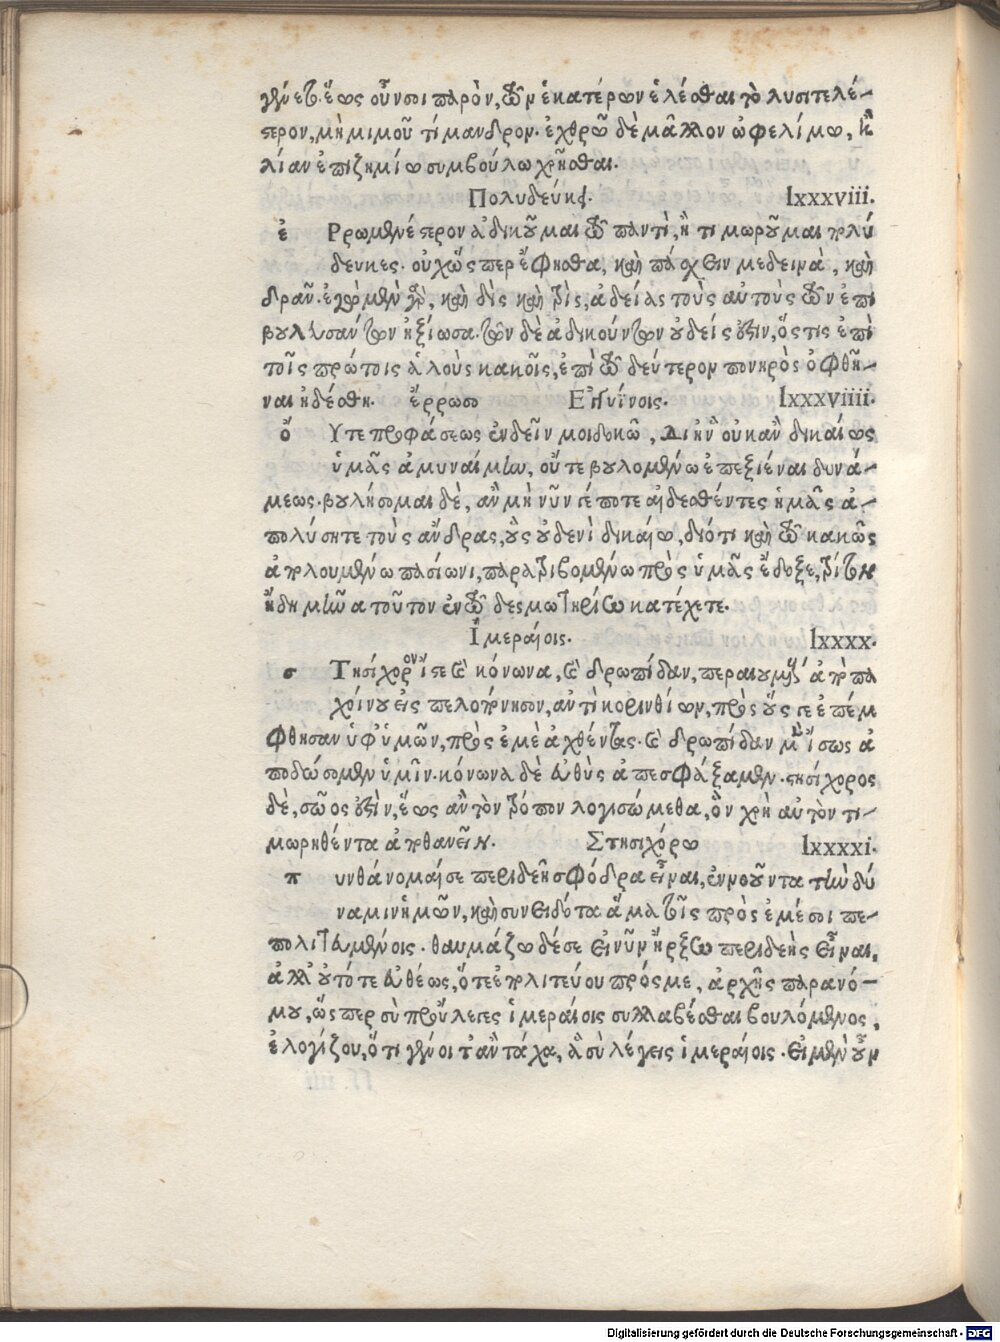 γένεσθ. ἕως οὖν σοι παρὸν, τῶν ἑκατέρων ἑλέσθαι τὸ λυσιτελέ-
στερον, μὴ μιμοῦ τίμανδρον. ἐχθρῷ δὲ μᾶλλον ὠφελίμῳ, ἢ
λίαν ἐπιζημίῳ συμβούλῳ χρῆσθαι.
Πολυδεύκῃ. lxxxviii.
ἐ Ρρωμένέστερον ἀδικοῦμαι τῷ παντὶ, ἢ τιμωροῦμαι πολύ
δευκες. οὐχ ὥσπερ ἔφησθα, καὶ πάσχειν μεδεινὰ, καὶ
δρᾶν. ἐγὼ μὲν γὰρ, καὶ δὶς καὶ τρὶς, ἀδείας τοὺς αὐτοὺς τῶν ἐπι
βουλευσάντων ἠξίωσα. τῶν δὲ ἀδικούντων οὐδείς ἐστιν, ὅστις ἐπὶ
τοῖς πρώτοις ἁλοὺς κακοῖς, ἐπὶ τῷ δεύτερον πονηρὸς ὀφθῆ-
ναι ᾐδέσθη. ἔρρωσο Ἐγγυΐνοις. lxxxviiii.
ὄ Υτε προφάσεως ἐνδεῖν μοι δοκῶ, δι ἣν οὐκ ἂν δικαίως
ὑμᾶς ἀμυναίμην, οὔτε βουλομένῳ ἐπεξιέναι δυνά-
μεως. βουλήσομαι δὲ, ἂν μὴ νῦν γέ ποτε αἰδεσθέντες ἡμᾶς ἀ-
πολύσητε τοὺς ἄνδρας, οὓς οὐδενὶ δικαίῳ, διότι καὶ τῷ κακῶς
ἀπολουμένῳ πασίωνι, παραγιβομένῳ πρὸς ὑμᾶς ἔδοξε, τρίτον
ἤδη μῆνα τοῦτον ἐν τῷ δεσμωτηρίῳ κατέχετε.
Ἱμεραίοις. lxxxx.
σ Τησίχορόν γε καὶ κόνωνα, καὶ δρωπίδαν, περαιουμένους ἀπὸ πα
χοίνου εἰς πελοπόνησον, ἀντὶ κορινθίων, πρὸς οὕς γε ἐπέμ
φθησαν ὑφ' ὑμῶν, πρὸς ἐμὲ ἀχθέντας. καὶ δρωπίδαν μὲν ἴσως ἀ
ποδώσομεν ὑμῖν. κόνωνα δὲ εὐθὺς ἀπεσφάξαμεν. στησίχορος
δὲ, σῶος ἐστὶν, ἕως ἂν τὸν τρόπον λογισώμεθα, ὃν χρὴ αὐτὸν τι-
μωρηθέντα ἀποθανεῖν. Στησιχόρῳ lxxxxi.
π υνθάνομαί σε περιδεῆ σφόδρα εἶναι, ἐννοοῦντα τὴν δύ
ναμιν ἡμῶν, καὶ συνειδότα ἅμα τοῖς πρὸς ἐμέ σοι πε-
πολιτευμένοις. θαυμάζω δέ σε εἰ νῦν ἤρξω περιδεὴς εἶναι,
ἀλλ' οὐ τότε εὐθέως, ὅτε ἐπολιτεύου πρός με, ἀρχῆς παρανό-
μου, ὥσπερ σὺ προὔλεγες ἱμεραίοις συλλαβέσθαι βουλόμενος,
ἐλογίζου, ὅτι γένοιτ' ἂν τάχα, ἃ σὺ λέγεις ἱμεραίοις. εἰ μὲν οὖν
Digitalisierung gefördert durch die Deutsche Forschungsgemeinschaft - DFG